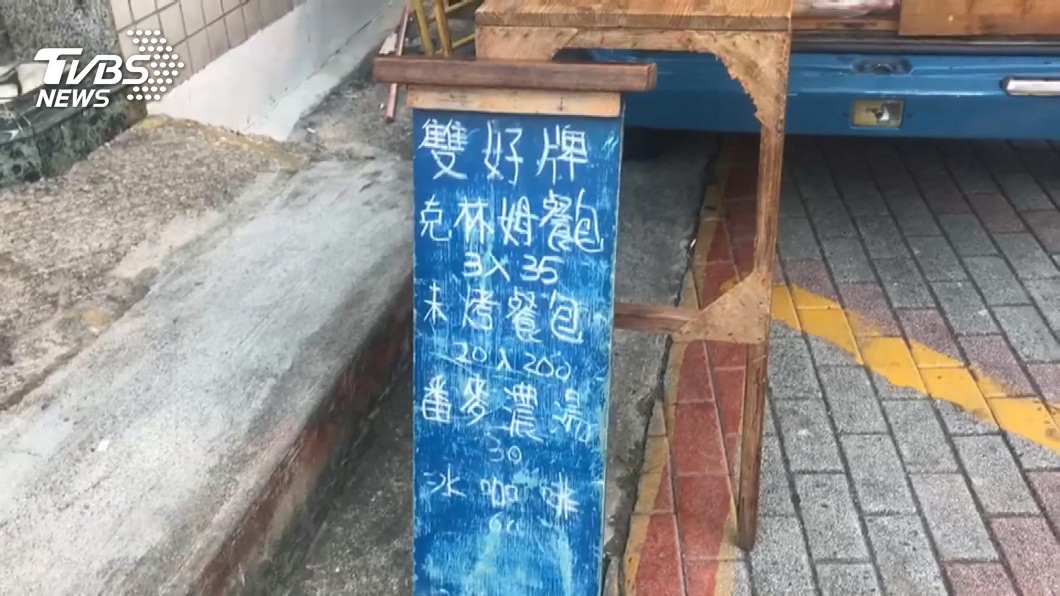 TVBS
NEWS
雙好牌
克林姆餐包
3X35
未烤餐包
20X200
番麥濃湯
30
冰咖啡